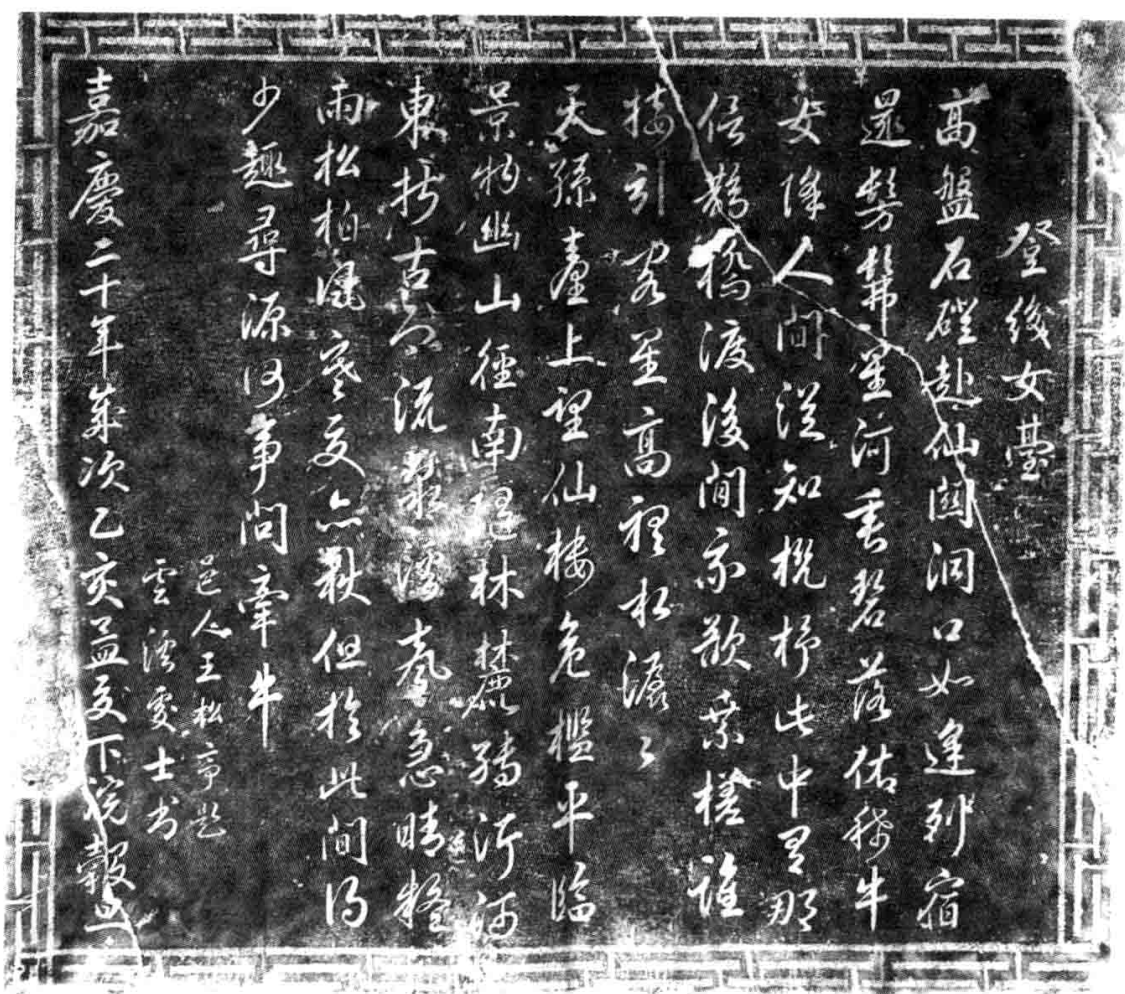 登織女臺
高盤石磴赴仙關洞口如逢列宿
還髣髴星河垂碧落依稀牛
女降人間從知機杼此中有那
信鵲橋渡後閒我欲乘槎誰
接引客星高
天孫臺上望仙樓危檻平臨
景物幽山徑南環林麓繞沂河
東折古今流溪急晴疑
雨松柏風寒夏亦秋但於此間得
少趣尋源何事問牽牛
邑人王松亭題
雲溪處士书
嘉慶二十年歲次乙亥孟夏下浣穀旦